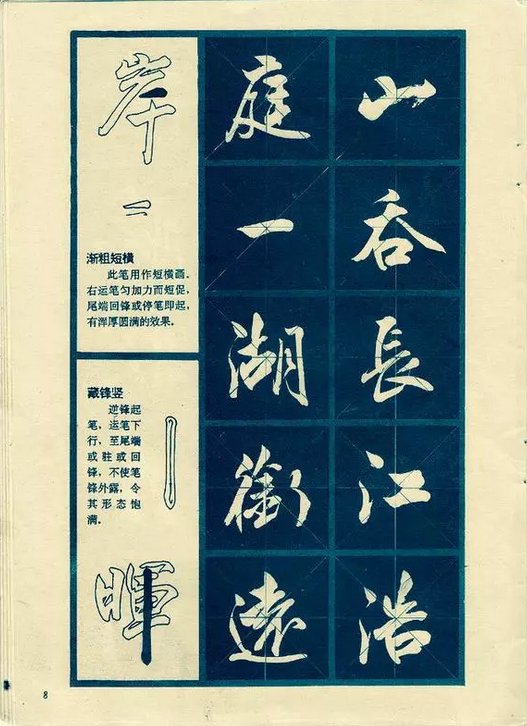 岸
渐粗短横
此笔用作短横画。
右运笔匀加力而短促，
尾端回锋或停笔即起，
有浑厚圆满的效果。
藏锋竖
逆锋起
笔，运笔下
行，至尾端
或驻或回
锋，不使笔
锋外露，令
其形态饱
满。
暉
庭一湖銜遠
山吞長江浩
8